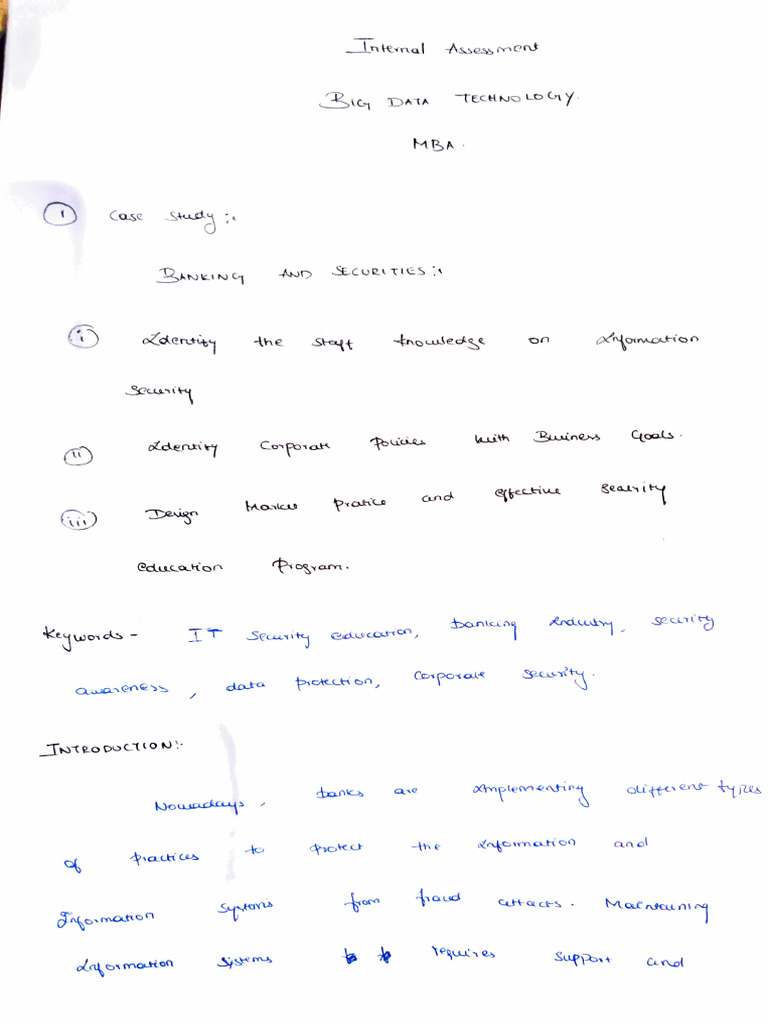 Internal Assessment
BIG DATA TECHNOLOGY.
MBA.
① Case Study:-
BANKING AND SECURITIES:-
(i) Identify the staff knowledge on Information
Security
(ii) Identify Corporate Policies with Business Goals.
(iii) Design Pratice and effective security
education Program.
Keywords - IT Security education, banking industry, security
awareness, data protection, corporate security.
INTRODUCTION:-
Nowadays, banks are implementing different types
of practices to protect the information and
Information Systems from fraud attacts. Maintaining
Information Sistems requires support and